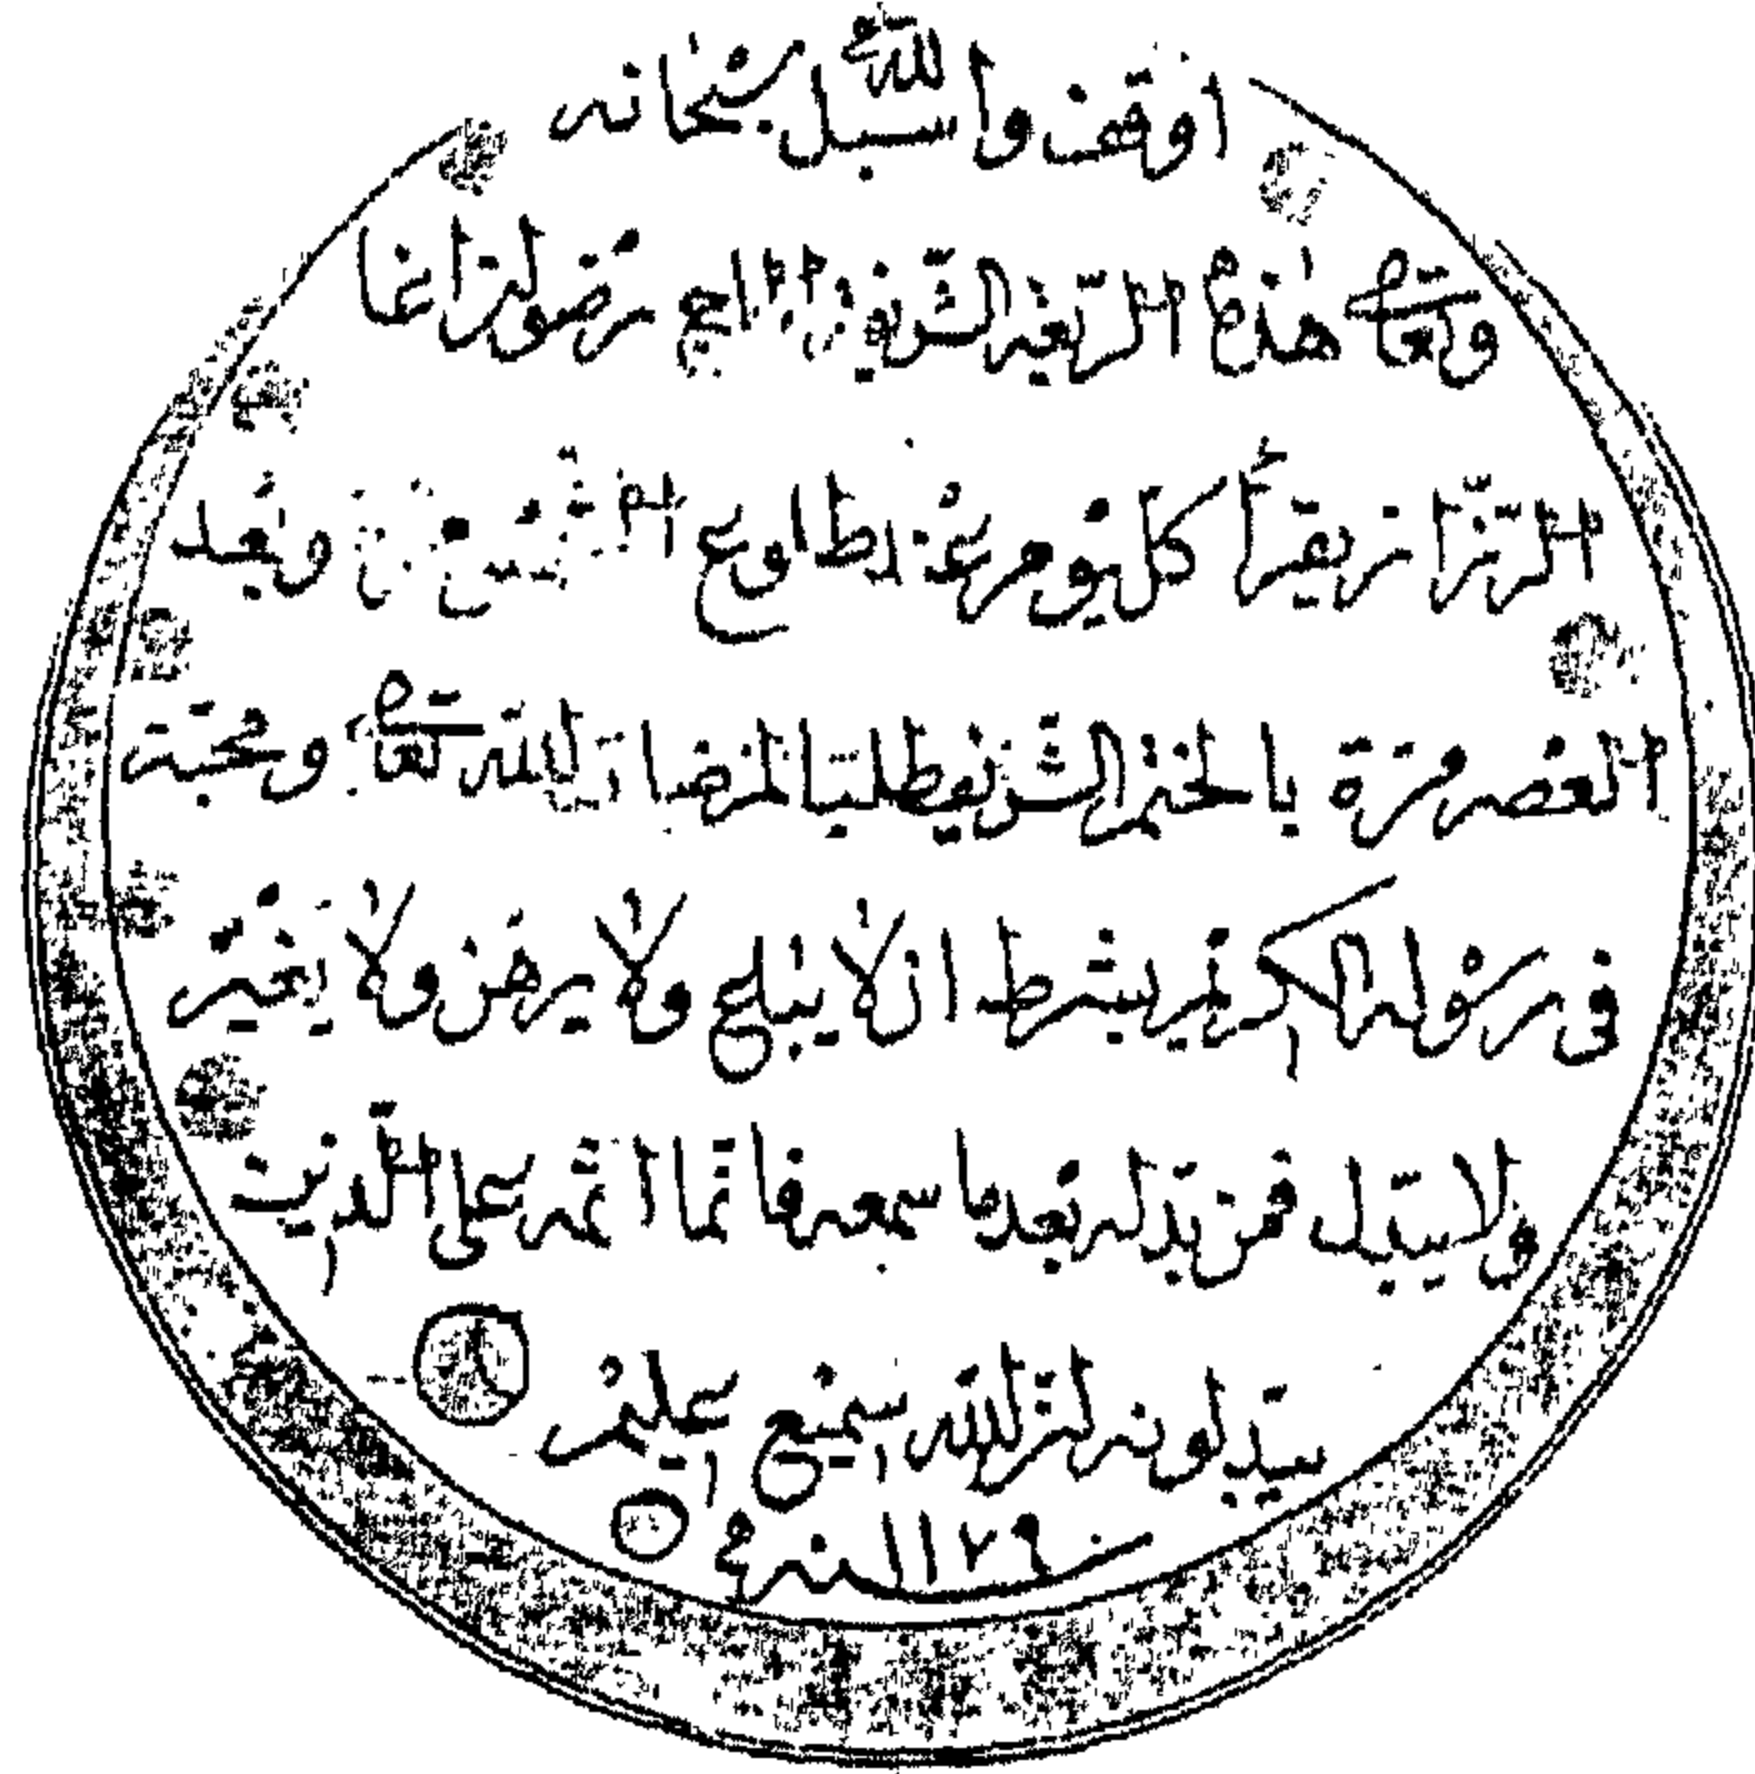 اوقف واسبل لله سبحانه
وتعالى هذه الربعة الشريفة الحاج رضوان اغا
الرزاز يقرأ كل يوم عند طلوع الشمس وبعد
العصر مرة بالختم الشريف طلبا لمرضات الله تعالى ومحبة
في رسوله الكريم بشرط ان لا يباع ولا يرهن ولا يغير
ولا يبدل فمن بدله بعد ما سمعه فانما اثمه على الذين
يبدلونه ان الله سميع عليم
سنة ١١٧٩